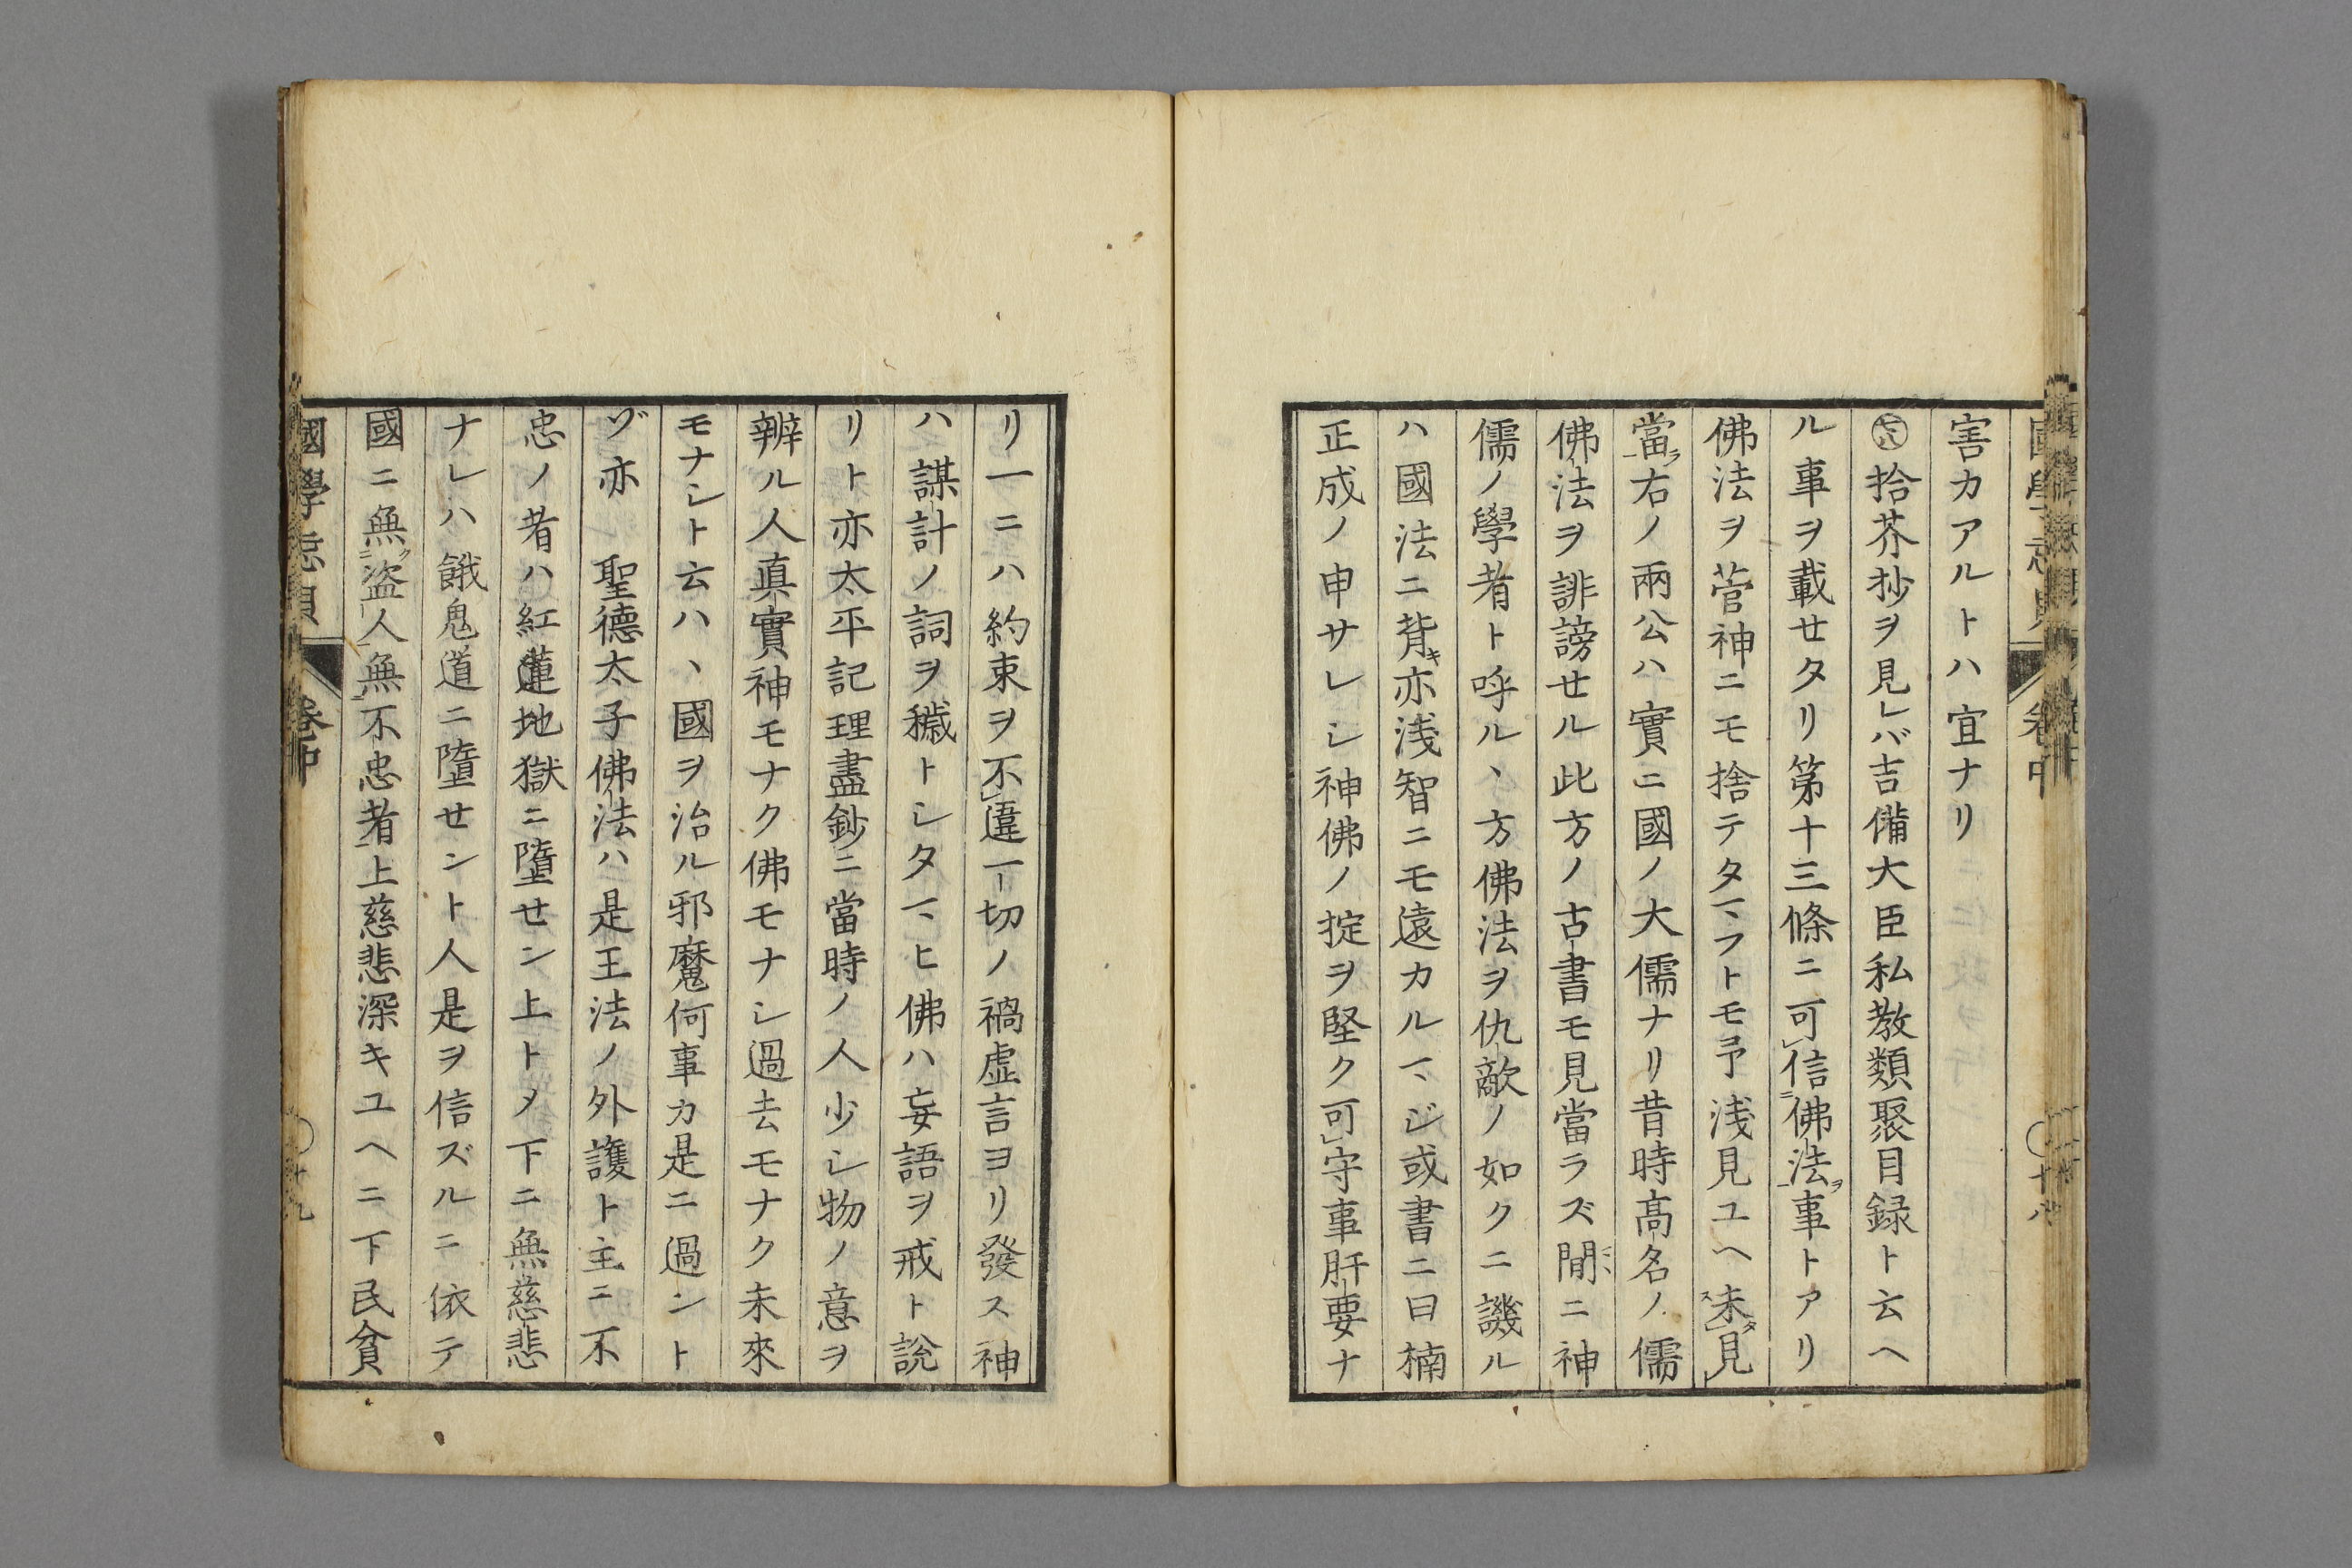 害カアルトハ宜ナリ
㊅八拾芥抄ヲ見レバ吉備大臣私教類聚目録ト云ヘ
ル事ヲ載セタリ第十三條ニ可レ信ニ佛法ヲ一事トアリ
佛法ヲ菅神ニモ捨テタマフトモ予淺見ユヘ未タスレ見レ
當ラ一右ノ兩公ハ實ニ國ノ大儒ナリ昔時髙名ノ儒
佛法ヲ誹謗セル此方ノ古書モ見當ラズ間ニ神
儒ノ學者ト呼ルヽ方佛法ヲ仇敵ノ如クニ譏ル
ハ國法ニ背キ亦浅智ニモ遠カルマジ或書ニ曰楠
正成ノ申サレシ神佛ノ掟ヲ堅ク可レ守事肝要ナ
リ一ニハ約束ヲ不レ違一切ノ禍虚言ヨリ發ス神
ハ謀計ノ詞ヲ穢トシタマヒ佛ハ妄語ヲ戒ト說
リト亦太平記理盡鈔ニ當時ノ人少シ物ノ意ヲ
辨ル人真實神モナク佛モナシ過去モナク未來
モナシト云ハヽ國ヲ治ル邪魔何事カ是ニ過ント
ゾ亦 聖德太子佛法ハ是王法ノ外護ト主ニ不
忠ノ者ハ紅蓮地獄ニ墮セシ上トメ下ニ無慈悲
ナレハ餓鬼道ニ墮セント人是ヲ信ズルニ依テ
國ニ無ク二盗人一無レ不忠者上慈悲深キユヘニ下民貧
國學忘貝 卷中 十九
卷中 十八